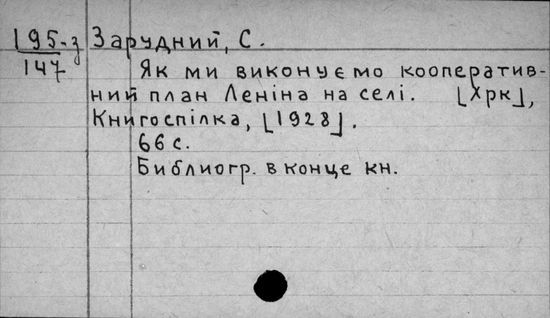 195-з Зарудний, С.
147
Як ми виконуємо кооператив-
ний план Леніна на селі. [Хрк],
Книгоспілка, [1928].
66 с.
Библиогр. в конце кн.